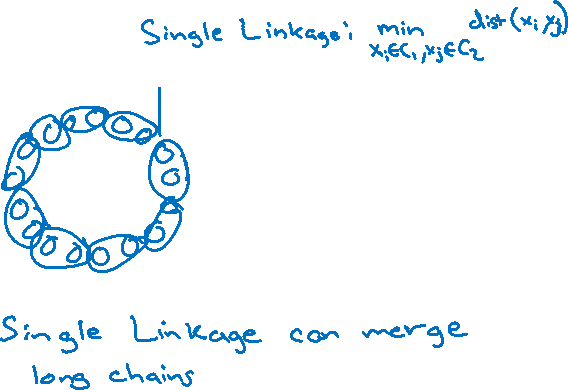 Single Linkage: min dist(xi, xj)
xi∈C1, xj∈C2
Single Linkage can merge
long chains